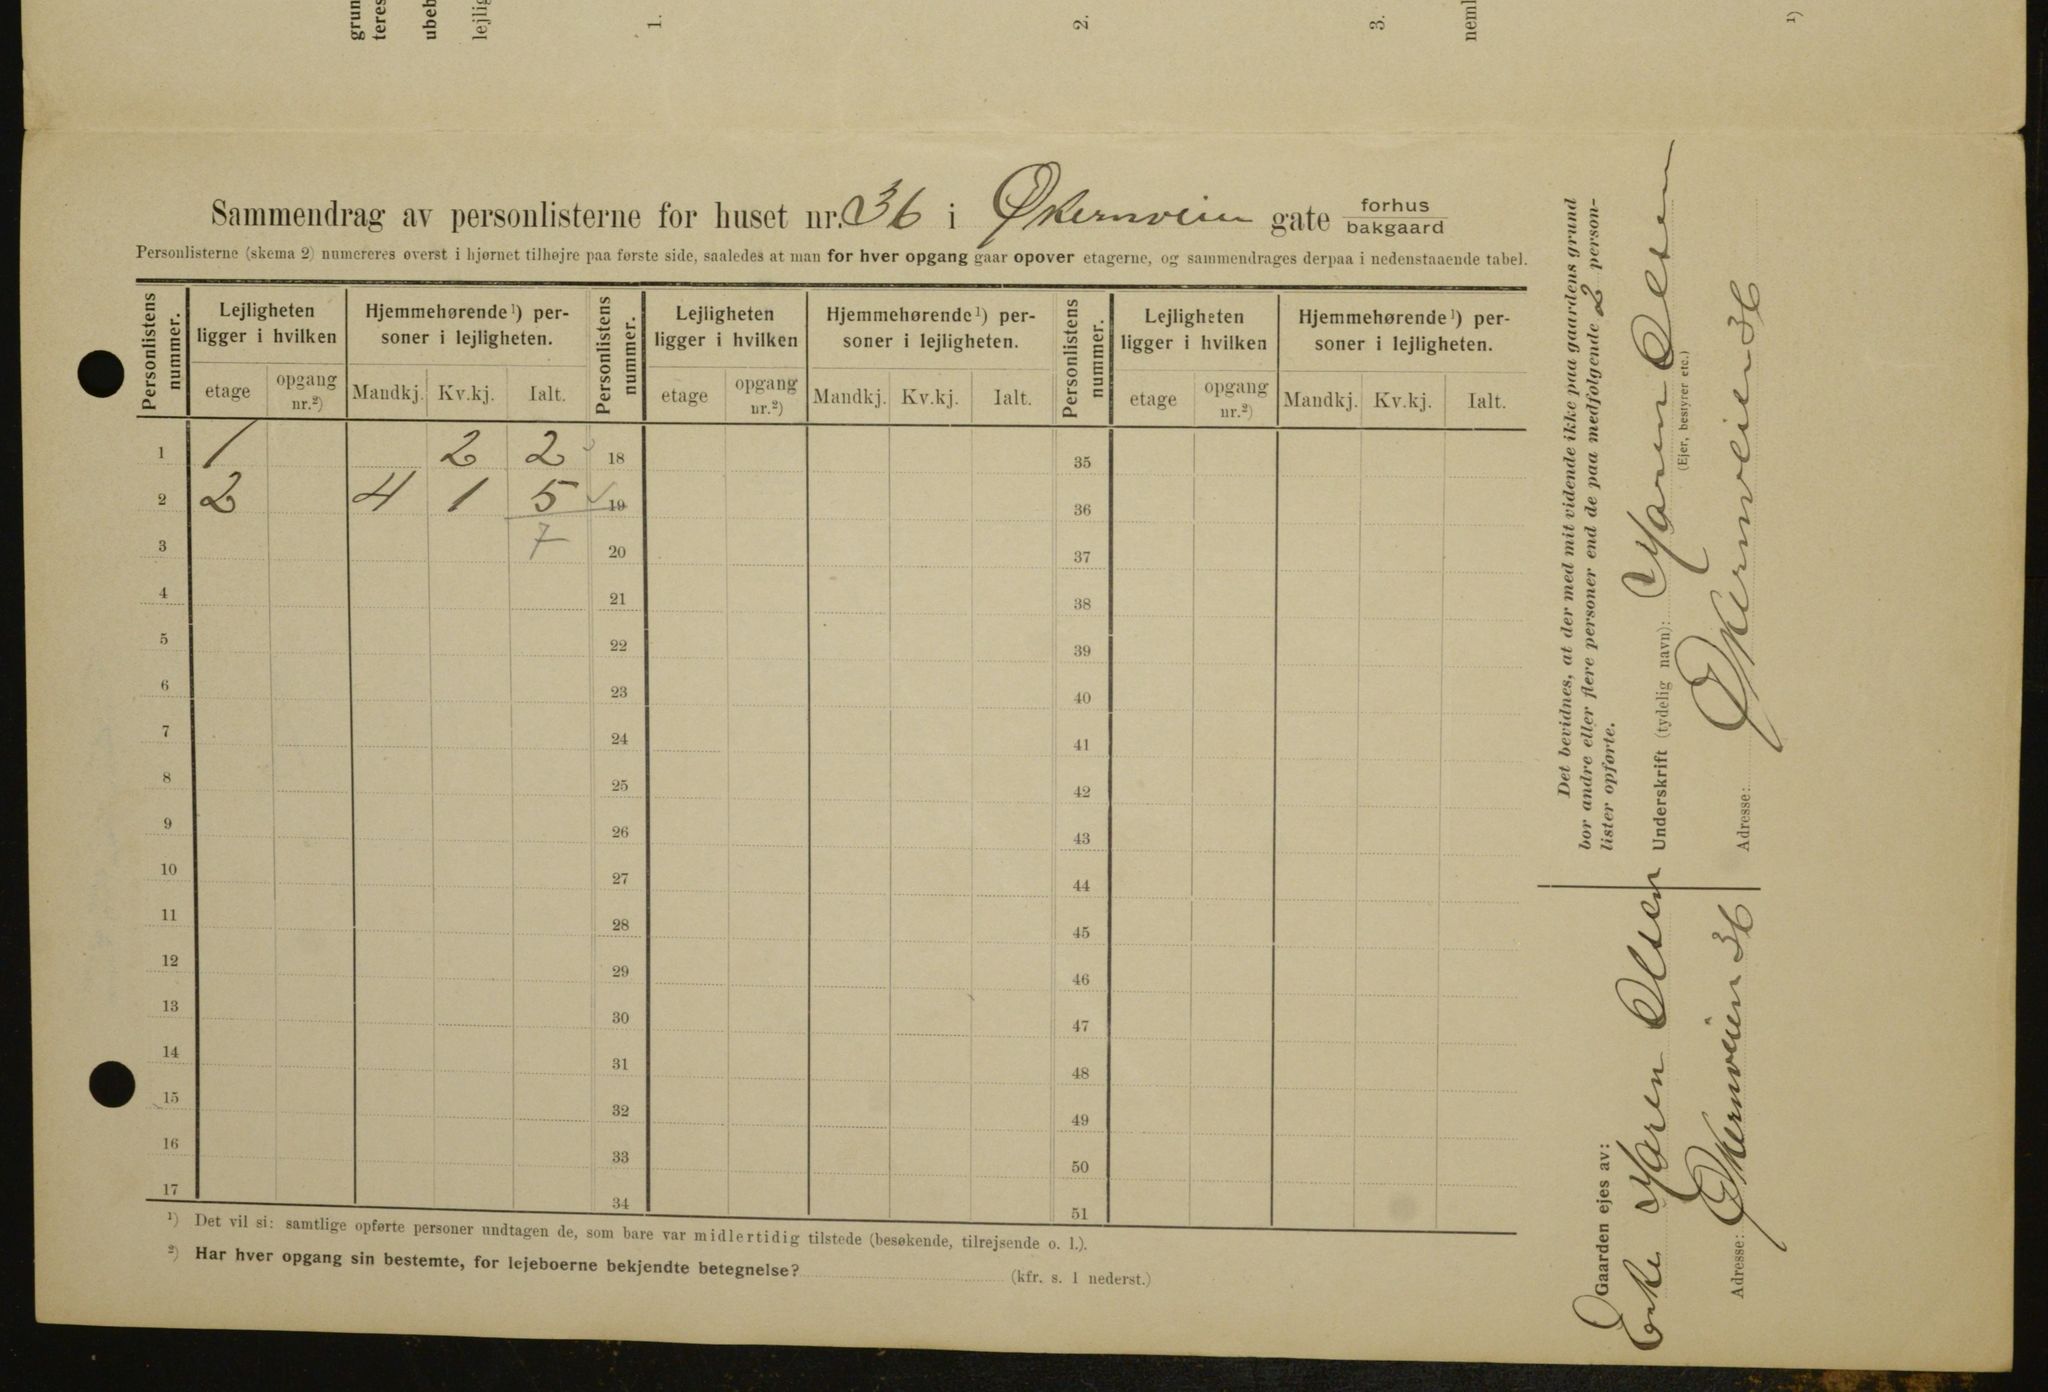 grun
teres
ubeb
lejlig
1.
2.
3.
neml
¹)
Sammendrag av personlisterne for huset nr. 36 i Økernveien gate forhus
bakgaard
Personlisterne (skema 2) numereres øverst i hjørnet tilhøjre paa første side, saaledes at man for hver opgang gaar opover etagerne, og sammendrages derpaa i nedenstaaende tabel.
Personlistens nummer. Lejligheten ligger i hvilken Hjemmehørende¹) personer i lejligheten. Personlistens nummer. Lejligheten ligger i hvilken Hjemmehørende¹) personer i lejligheten. Personlistens nummer. Lejligheten ligger i hvilken Hjemmehørende¹) personer i lejligheten.
etage opgang nr.²) Mandkj. Kv.kj. Ialt. etage opgang nr.²) Mandkj. Kv.kj. Ialt. etage opgang nr.²) Mandkj. Kv.kj. Ialt.
1 1 2 2 18 35
2 2 4 1 5 19 36
3 7 20 37
4 21 38
5 22 39
6 23 40
7 24 41
8 25 42
9 26 43
10 27 44
11 28 45
12 29 46
13 30 47
14 31 48
15 32 49
16 33 50
17 34 51
¹) Det vil si: samtlige opførte personer undtagen de, som bare var midlertidig tilstede (besøkende, tilrejsende o. l.).
²) Har hver opgang sin bestemte, for lejeboerne bekjendte betegnelse? (kfr. s. 1 nederst.)
Det bevidnes, at der med mit vidende ikke paa gaardens grund
bor andre eller flere personer end de paa medfolgende 2 person-
lister opførte.
Underskrift (tydelig navn): Maren Olsen
(Ejer, bestyrer etc.)
Adresse: Økernveien 36
Gaarden ejes av:
Enke Maren Olsen
Adresse: Økernveien 36